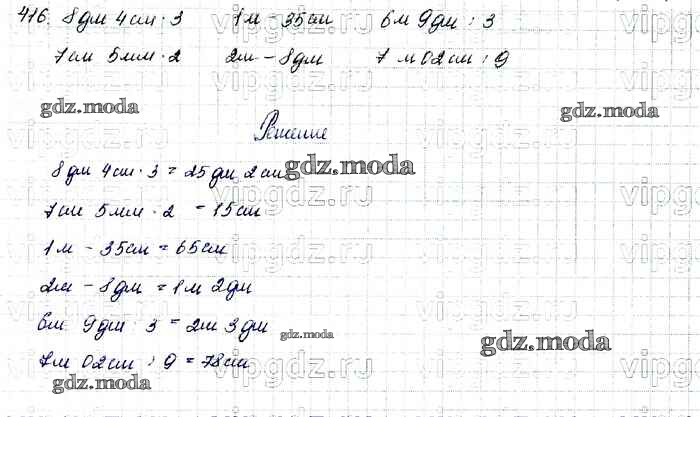 416. 8дм 4см · 3 1м - 35см 6м 9дм : 3
7см 5мм · 2 2м - 8дм 7м 02см : 9
gdz.moda
gdz.moda
Решение
8дм 4см · 3 = 25дм 2см
gdz.moda
7см 5мм · 2 = 15см
1м - 35см = 65см
2м - 8дм = 1м 2дм
6м 9дм : 3 = 2м 3дм
gdz.moda
gdz.moda
7м 02см : 9 = 78см
gdz.moda
vipgdz.ru